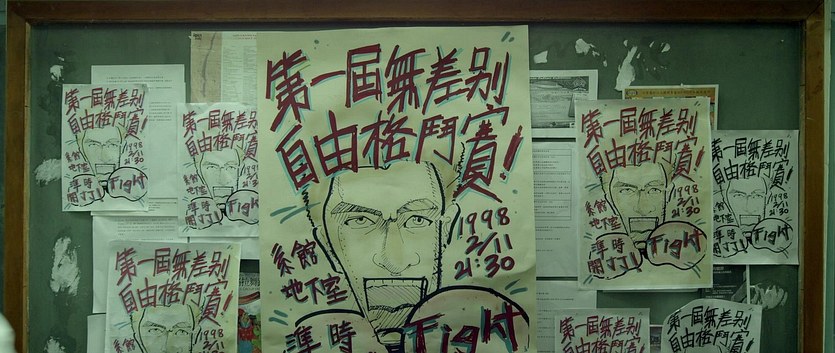 第一屆無差别
自由格鬥賽!
1998
2/11
21:30
系館
地下室
準時
Fight
第一屆無差别
自由格鬥賽!
1998
2/11
21:30
系館
地下室
準時
開打!
Fight
第一屆無差别
自由格鬥賽!
1998
2/11
21:30
系館
地下室
準時
Fight
第一屆無差别
自由格鬥賽!
1998
2/11
21:30
系館
地下室
準時
開打!
Fight
第一屆無差别
自由格鬥賽!
1998
2/11
21:30
系館
地下室
準時
開打!
Fight
第一屆無差别
自由格鬥賽!
1998
第一屆無差别
自由格鬥賽!
第一屆無差别
自由格鬥賽!